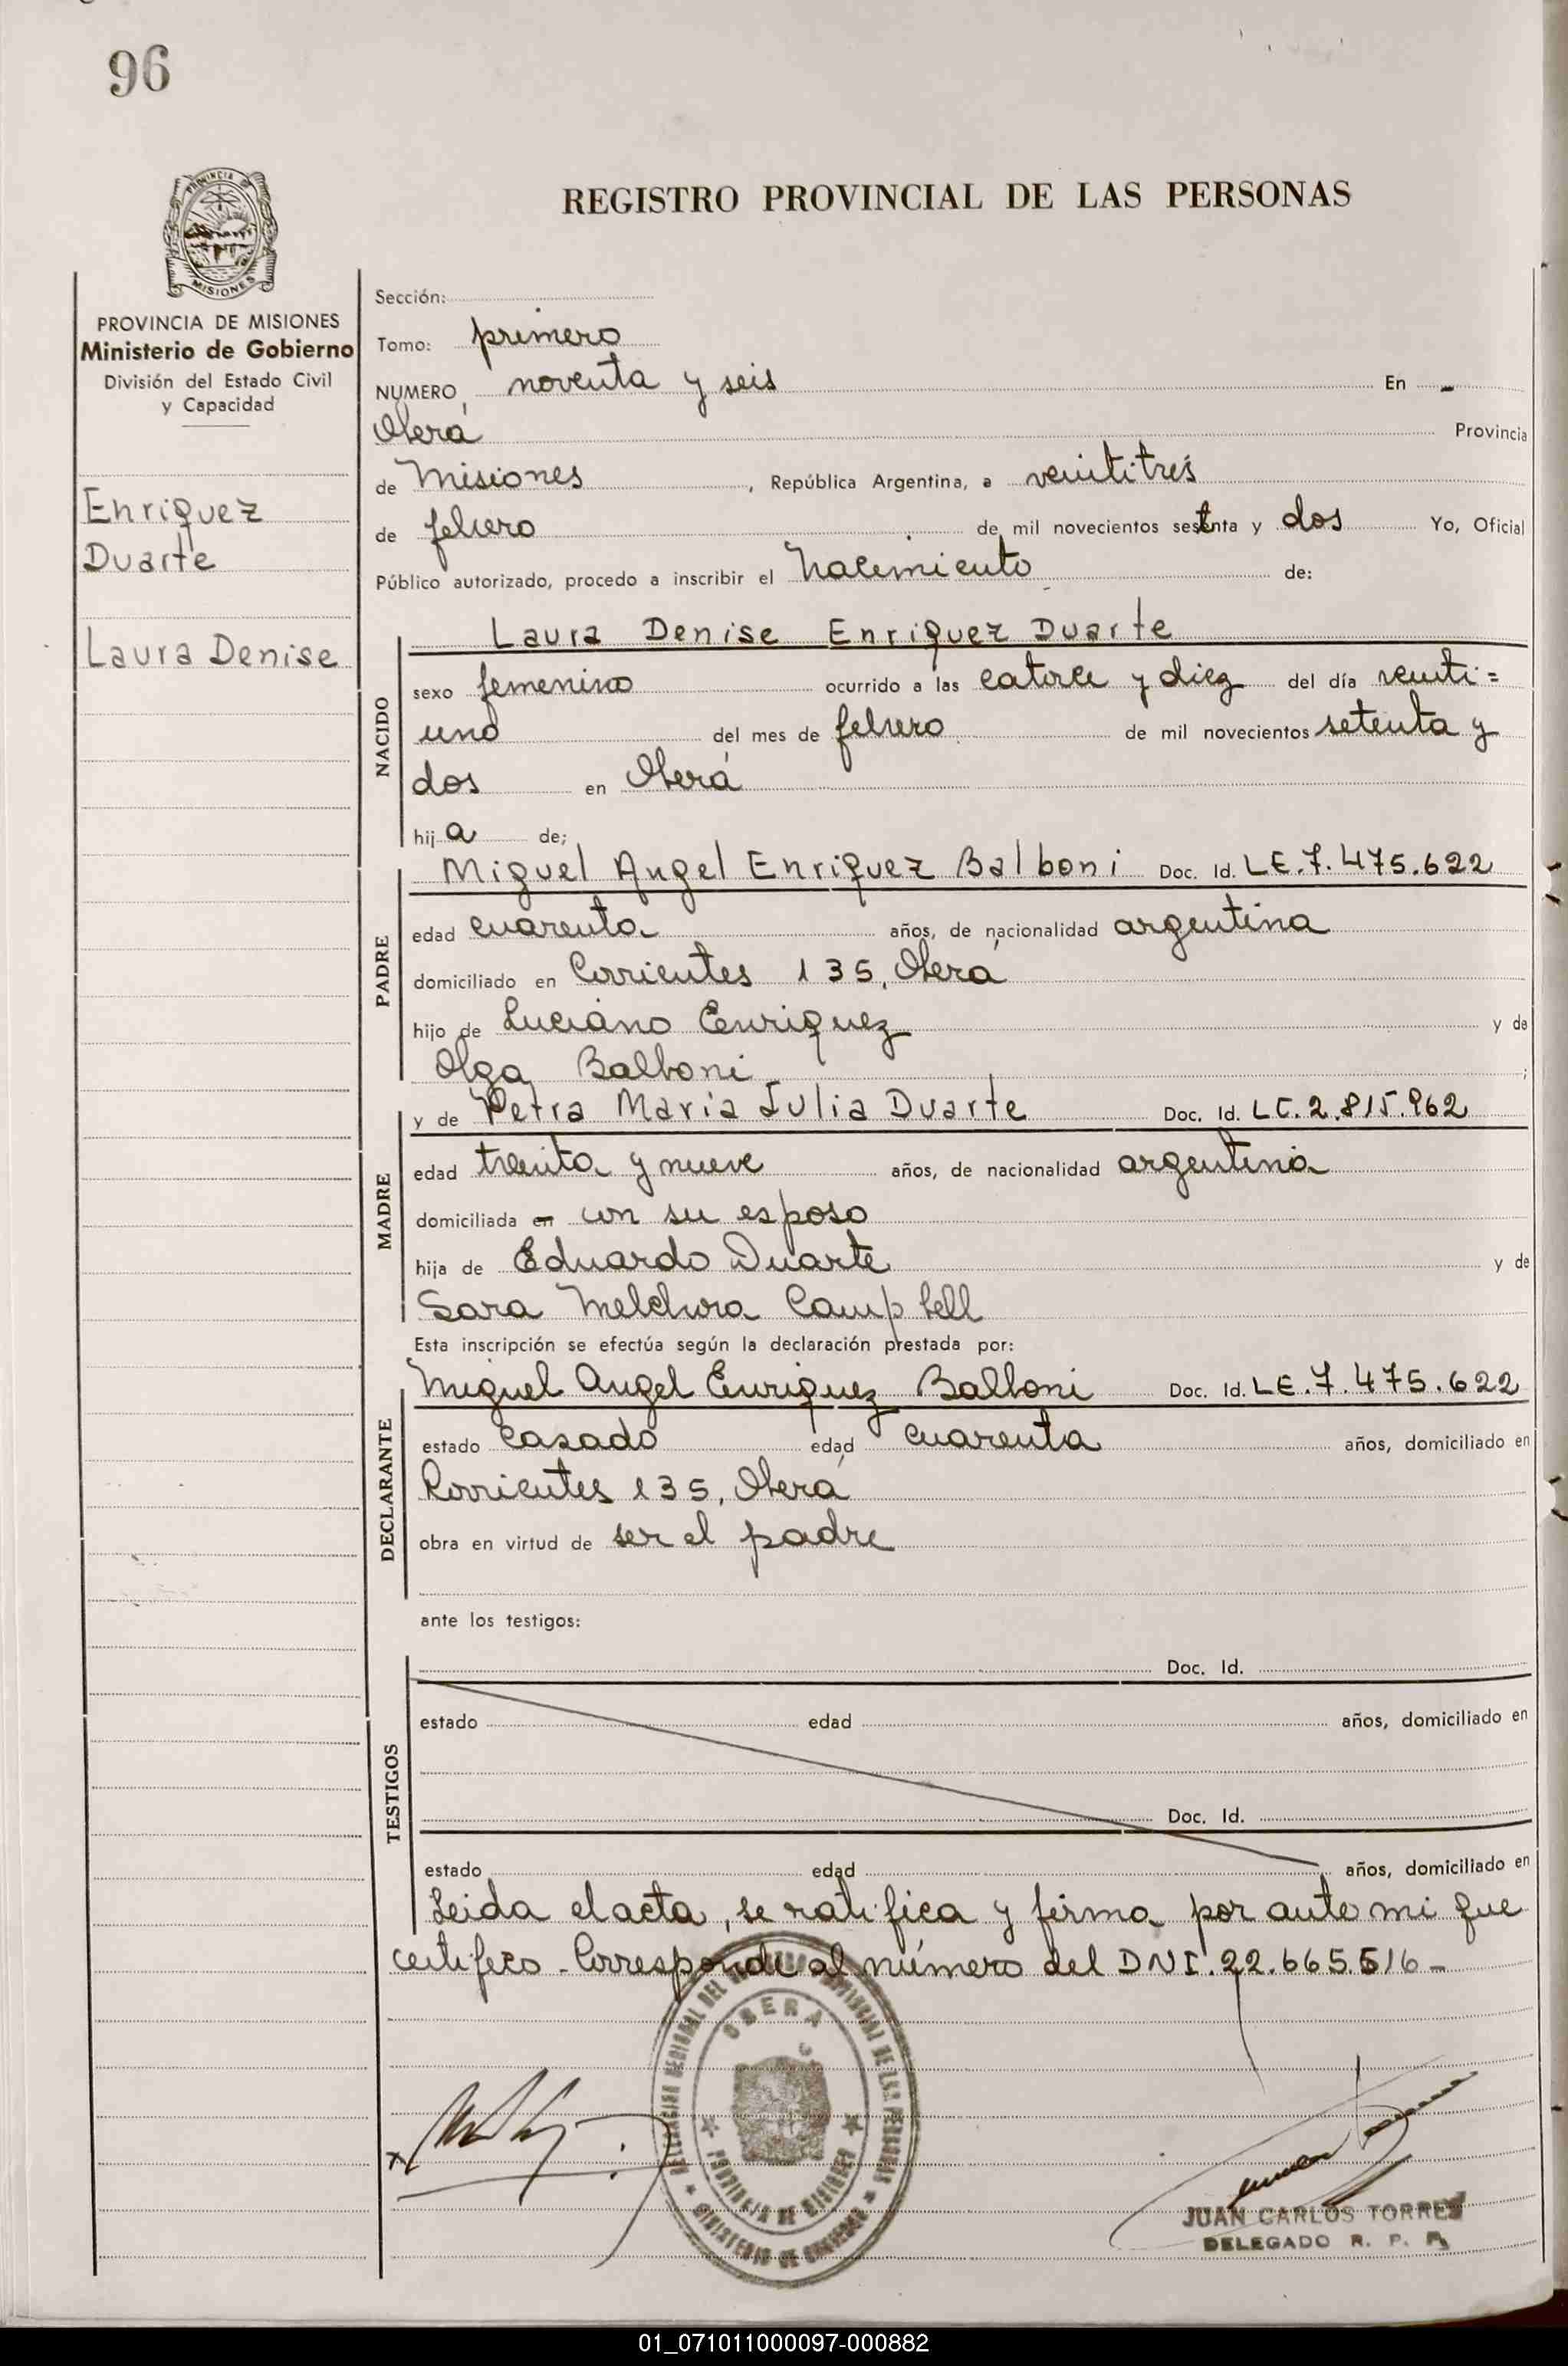 96
PROVINCIA DE
MISIONES
REGISTRO PROVINCIAL DE LAS PERSONAS
PROVINCIA DE MISIONES
Ministerio de Gobierno
División del Estado Civil
y Capacidad
Enriquez
Duarte
Laura Denise
Sección:
Tomo: primero
NUMERO noventa y seis En -
Oberá Provincia
de Misiones, República Argentina, a veintitrés
de febrero de mil novecientos setenta y dos Yo, Oficial
Público autorizado, procedo a inscribir el Nacimiento de:
NACIDO
Laura Denise Enriquez Duarte
sexo femenino ocurrido a las catorce y diez del día veinti=
uno del mes de febrero de mil novecientos setenta y
dos en Oberá
hija de;
PADRE
Miguel Angel Enriquez Balboni Doc. Id. LE.7.475.622
edad cuarenta años, de nacionalidad argentina
domiciliado en Corrientes 135, Oberá
hijo de Luciano Enriquez y de
Olga Balboni ;
MADRE
y de Petra María Julia Duarte Doc. Id. LC.2.815.962
edad treinta y nueve años, de nacionalidad argentina
domiciliada en con su esposo
hija de Eduardo Duarte y de
Sara Melchora Campbell
Esta inscripción se efectúa según la declaración prestada por:
DECLARANTE
Miguel Angel Enriquez Balboni Doc. Id. LE.7.475.622
estado casado edad cuarenta años, domiciliado en
Corrientes 135, Oberá
obra en virtud de ser el padre
ante los testigos:
TESTIGOS
Doc. Id.
estado edad años, domiciliado en
Doc. Id.
estado edad años, domiciliado en
Leida el acta, se ratifica y firma por ante mi que
certifico - Corresponde al número del DNI. 22.665.516 -
DELEGACION REGIONAL DEL REGISTRO PROVINCIAL DE LAS PERSONAS
OBERA
PROVINCIA DE MISIONES
MINISTERIO DE GOBIERNO
JUAN CARLOS TORRES
DELEGADO R. P. P.
01_071011000097-000882